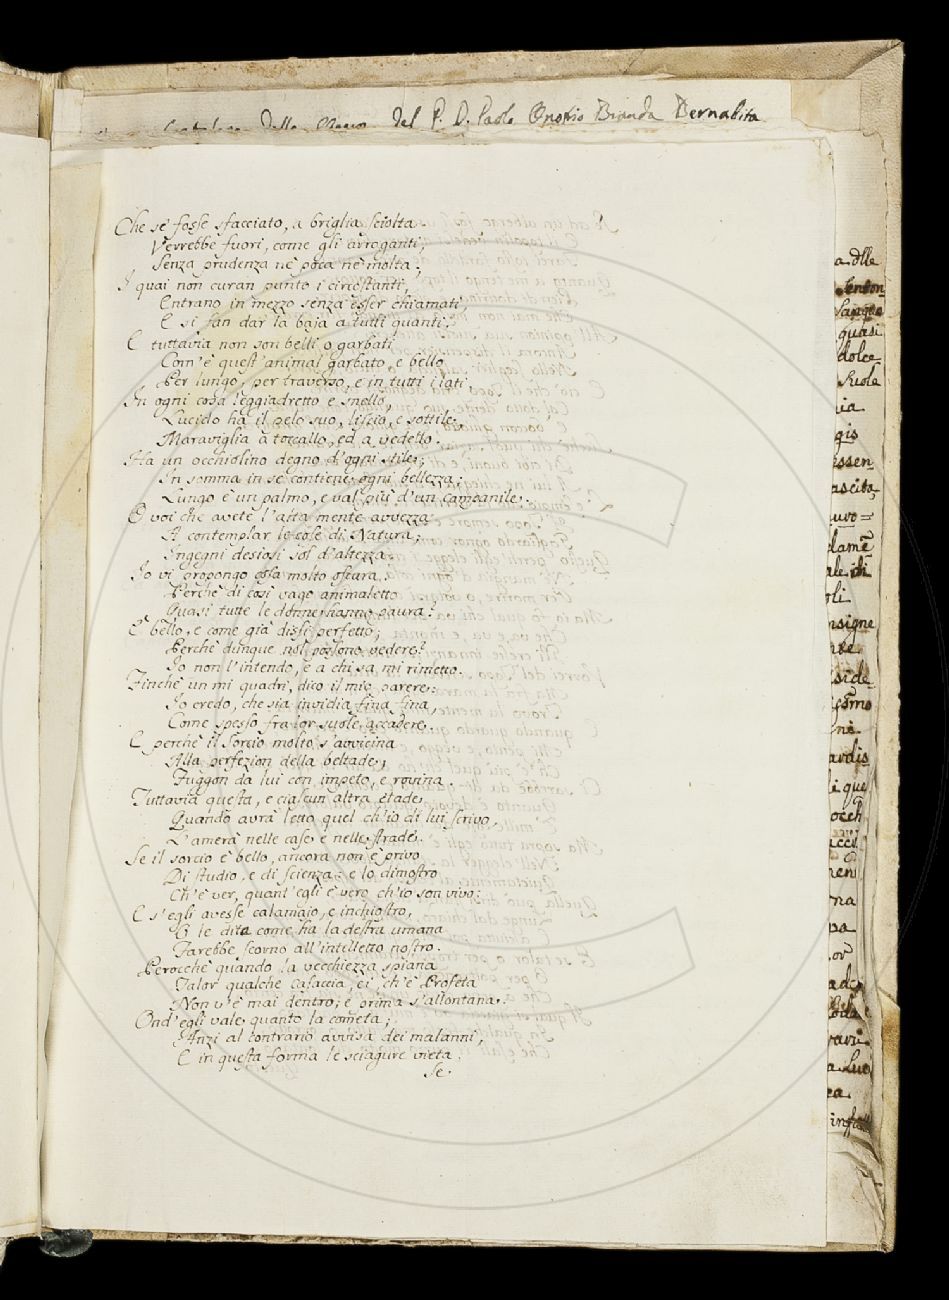 Catalogo delle Opere del P. D. Paolo Onofrio Branda Bernabita
Che se fosse sfacciato, a briglia sciolta
Verrebbe fuori, come gli arroganti,
Senza prudenza nè poca nè molta;
I quai non curan punto i circostanti,
Entrano in mezzo senza esser chiamati,
E si fan dar la baja a tutti quanti;
E tuttavia non son belli o garbati
Com'è quest'animal garbato, e bello
Per lungo, per traverso, e in tutti i lati,
In ogni cosa leggiadretto e snello,
Lucido ha il pelo suo, liscio, e sottile,
Maraviglia a toccallo, ed a vedello.
Ha un occhiolino degno d'ogni stile;
In somma in se contiene ogni bellezza;
Lungo è un palmo, e val più d'un campanile.
O voi che avete l'alta mente avvezza
A contemplar le cose di Natura,
Ingegni desiosi sol d'altezza,
Io vi propongo cosa molto oscura,
Perchè di così vago animaletto
Quasi tutte le donne hanno paura?
È bello, e come già dissi perfetto;
Perchè dunque nol possono vedere?
Io non l'intendo, e a chi sa mi rimetto.
Finchè un mi quadri, dico il mio parere:
Io credo, che sia invidia fina fina,
Come spesso fra lor suole accadere.
E perchè il Sorcio molto s'avvicina
Alla perfezion della beltade,
Fuggon da lui con impeto, e rovina
Tuttavia questa, e ciascun altra etade
Quando avrà letto quel ch'io di lui scrivo,
L'amerà nelle case e nelle strade.
Se il sorcio è bello, ancora non è privo
Di studio, e di scienza: e lo dimostro
Ch'è ver, quant'egli è vero ch'io son vivo:
E s'egli avesse calamaio, e inchiostro,
E le dita come ha la destra umana
Farebbe scorno all'intelletto nostro.
Perocchè quando la vecchiezza spiana
Talor qualche Casaccia, ei ch'è Profeta
Non v'è mai dentro; e prima s'allontana.
Ond'egli vale quanto la cometa;
Anzi al contrario avvisa dei malanni,
E in questa forma le sciagure vieta:
Se
a dlle
quasi
dolce
suole
ascita
insigne